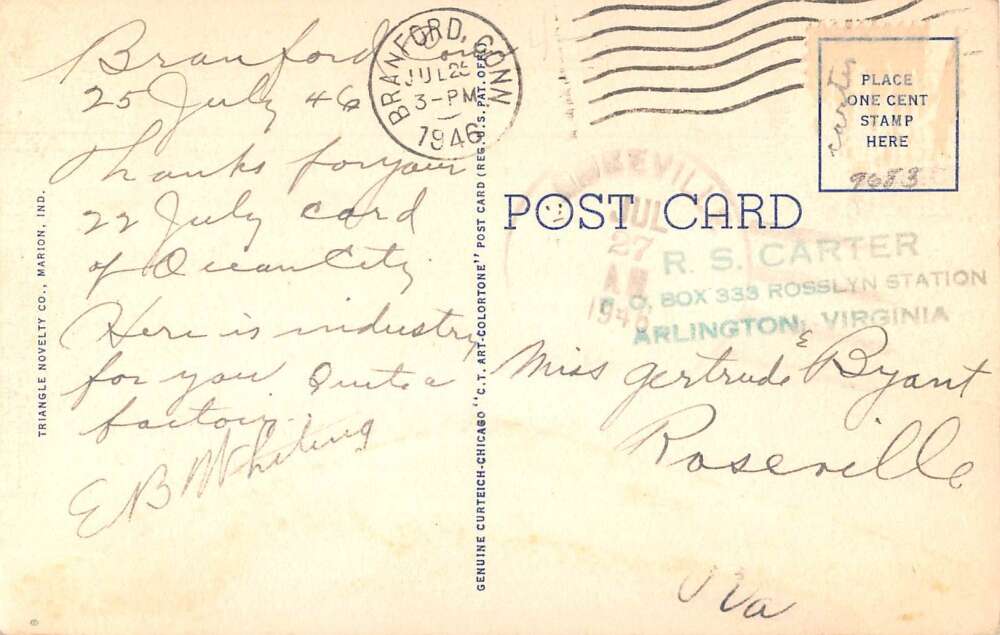 Branford Conn
25 July 46
Thanks for your
22 July card
of Ocean City
Here is industry
for you Quite a
factory.
E B Whiting
TRIANGLE NOVELTY CO., MARION, IND.
GENUINE CURTEICH-CHICAGO "C.T. ART-COLORTONE" POST CARD (REG. U.S. PAT. OFF.)
BRANFORD, CONN
JUL 25
3-PM
1946
POST CARD
PLACE
ONE CENT
STAMP
HERE
9683
JUL
27
AM
1946
R. S. CARTER
P. O. BOX 333 ROSSLYN STATION
ARLINGTON, VIRGINIA
Miss Gertrude E Byant
Roseville
Va